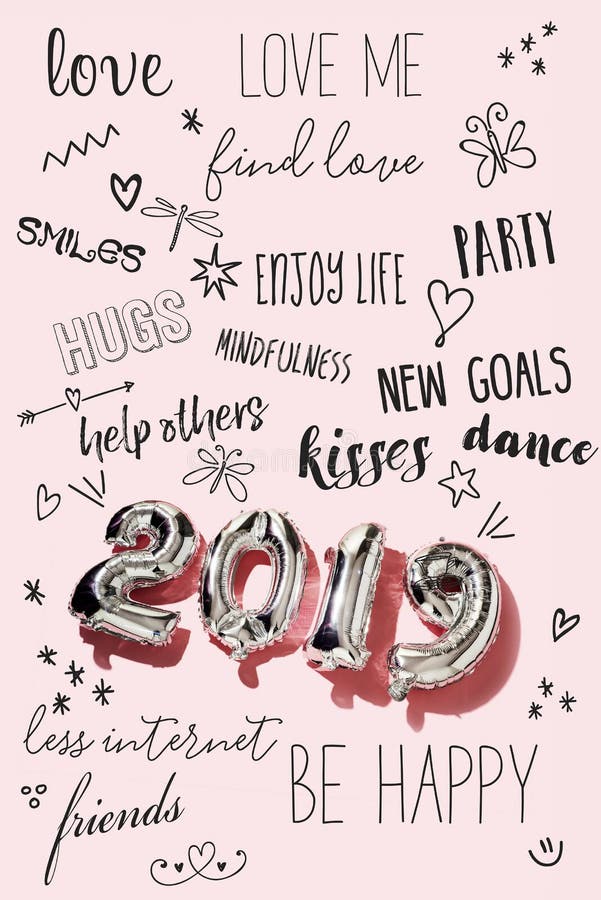 love
LOVE ME
find love
SMILES
ENJOY LIFE
PARTY
HUGS
MINDFULNESS
NEW GOALS
help others
kisses
dance
2019
less internet
BE HAPPY
friends